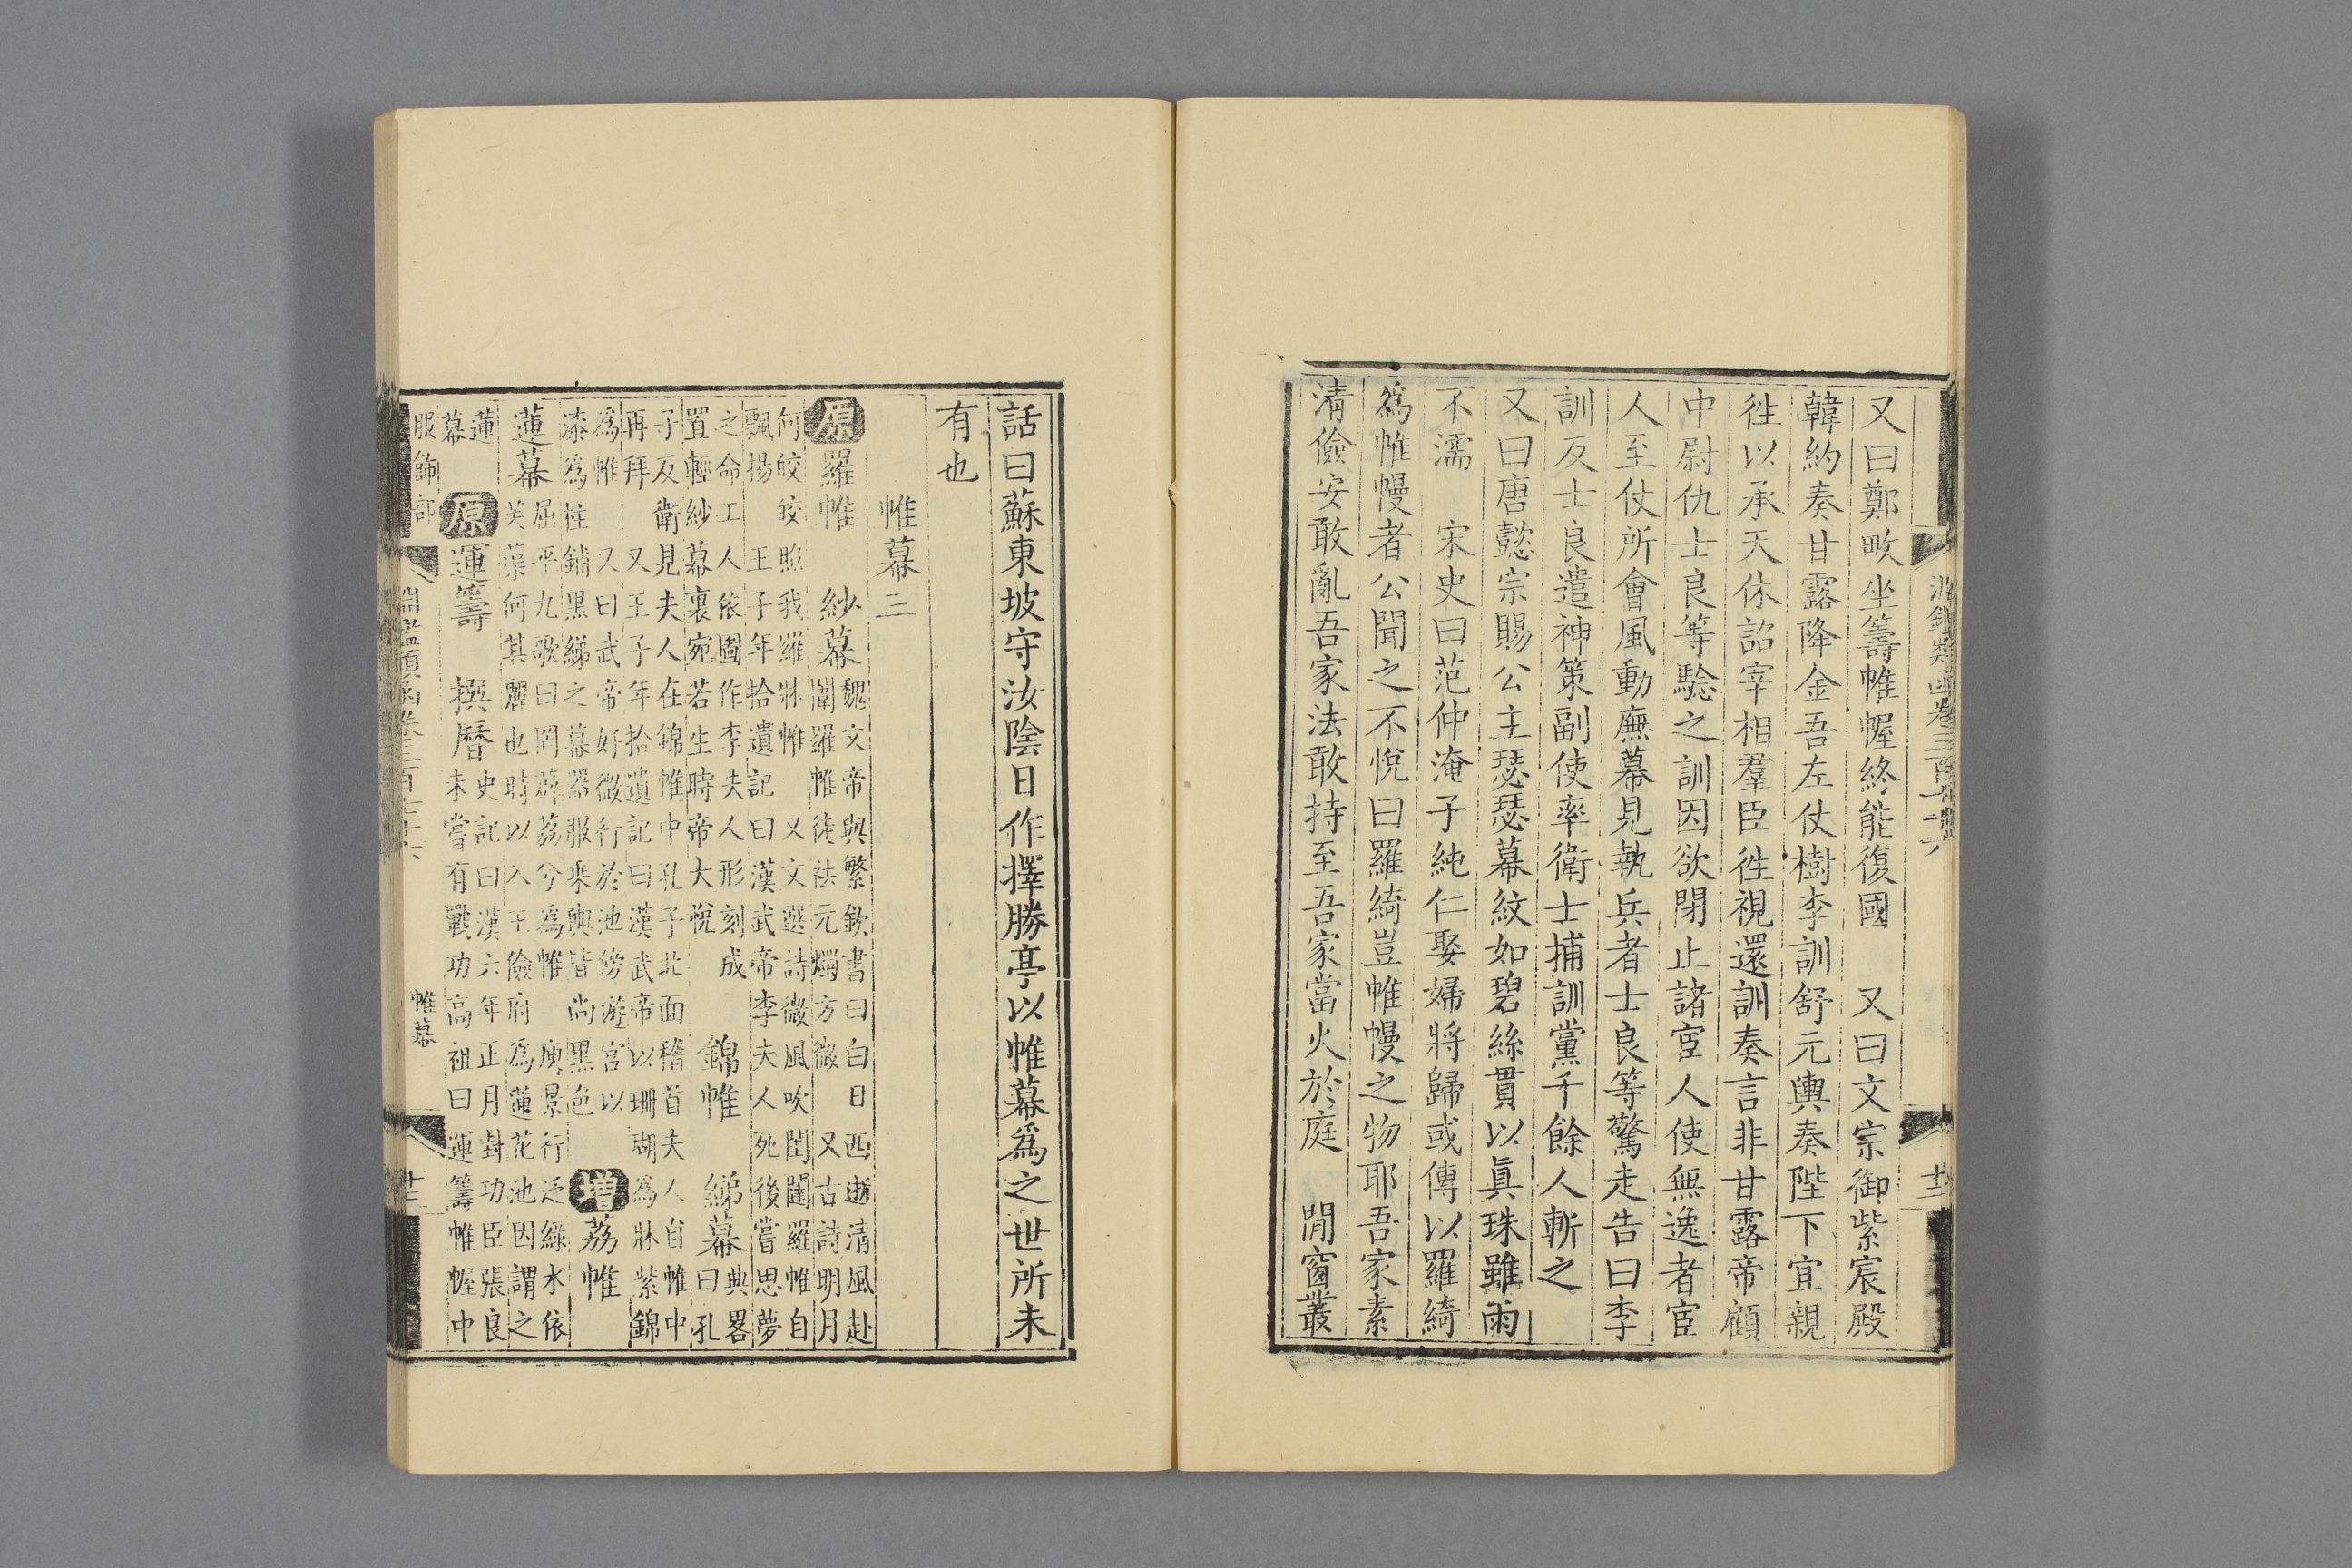 又曰鄭畋坐籌帷幄終能復國　又曰文宗御紫宸殿
韓約奏甘露降金吾左仗樹李訓舒元輿奏陛下宜親
徃以承天休詔宰相羣臣徃視還訓奏言非甘露帝顧
中尉仇士良等騐之訓因欲閉止諸宦人使無逸者宦
人至仗所會風動廡幕見執兵者士良等驚走告曰李
訓反士良遣神策副使率衛士捕訓黨千餘人斬之
又曰唐懿宗賜公主瑟瑟幕紋如碧絲貫以眞珠雖雨
不濡　宋史曰范仲淹子純仁娶婦將歸或傳以羅綺
爲帷幔者公聞之不悅曰羅綺豈帷幔之物耶吾家素
清儉安敢亂吾家法敢持至吾家當火於庭　閒窗叢
話曰蘇東坡守汝陰日作擇勝亭以帷幕爲之世所未
有也
帷幕三
原羅帷　紗幕
魏文帝與繁欽書曰白日西逝清風赴
闈羅帷徒袪元燭方微　又古詩明月
何皎皎照我羅牀帷　又文選詩微風吹閨闥羅帷自
飄揚　王子年拾遺記曰漢武帝李夫人死後嘗思夢
之命工人依圖作李夫人形刻成
置輕紗幕裏宛若生時帝大悅
錦帷　綈幕
典畧
曰孔
子反衛見夫人在錦帷中孔子北面稽首夫人自帷中
再拜　又王子年拾遺記曰漢武帝以珊瑚爲牀紫錦
爲帷　又曰武帝好微行於池傍游宮以
漆爲柱鋪黑綈之幕器服乘輿皆尚黑色
增荔帷
蓮幕
屈平九歌曰罔薜荔兮爲帷　庾景行泛綠水依
芙葉何其麗也時以入王儉府爲蓮花池因謂之
蓮
幕
原運籌　撰曆
史記曰漢六年正月封功臣張良
未嘗有戰功高祖曰運籌帷幄中
服飾部
淵鑑類函卷三百七十六
帷幕